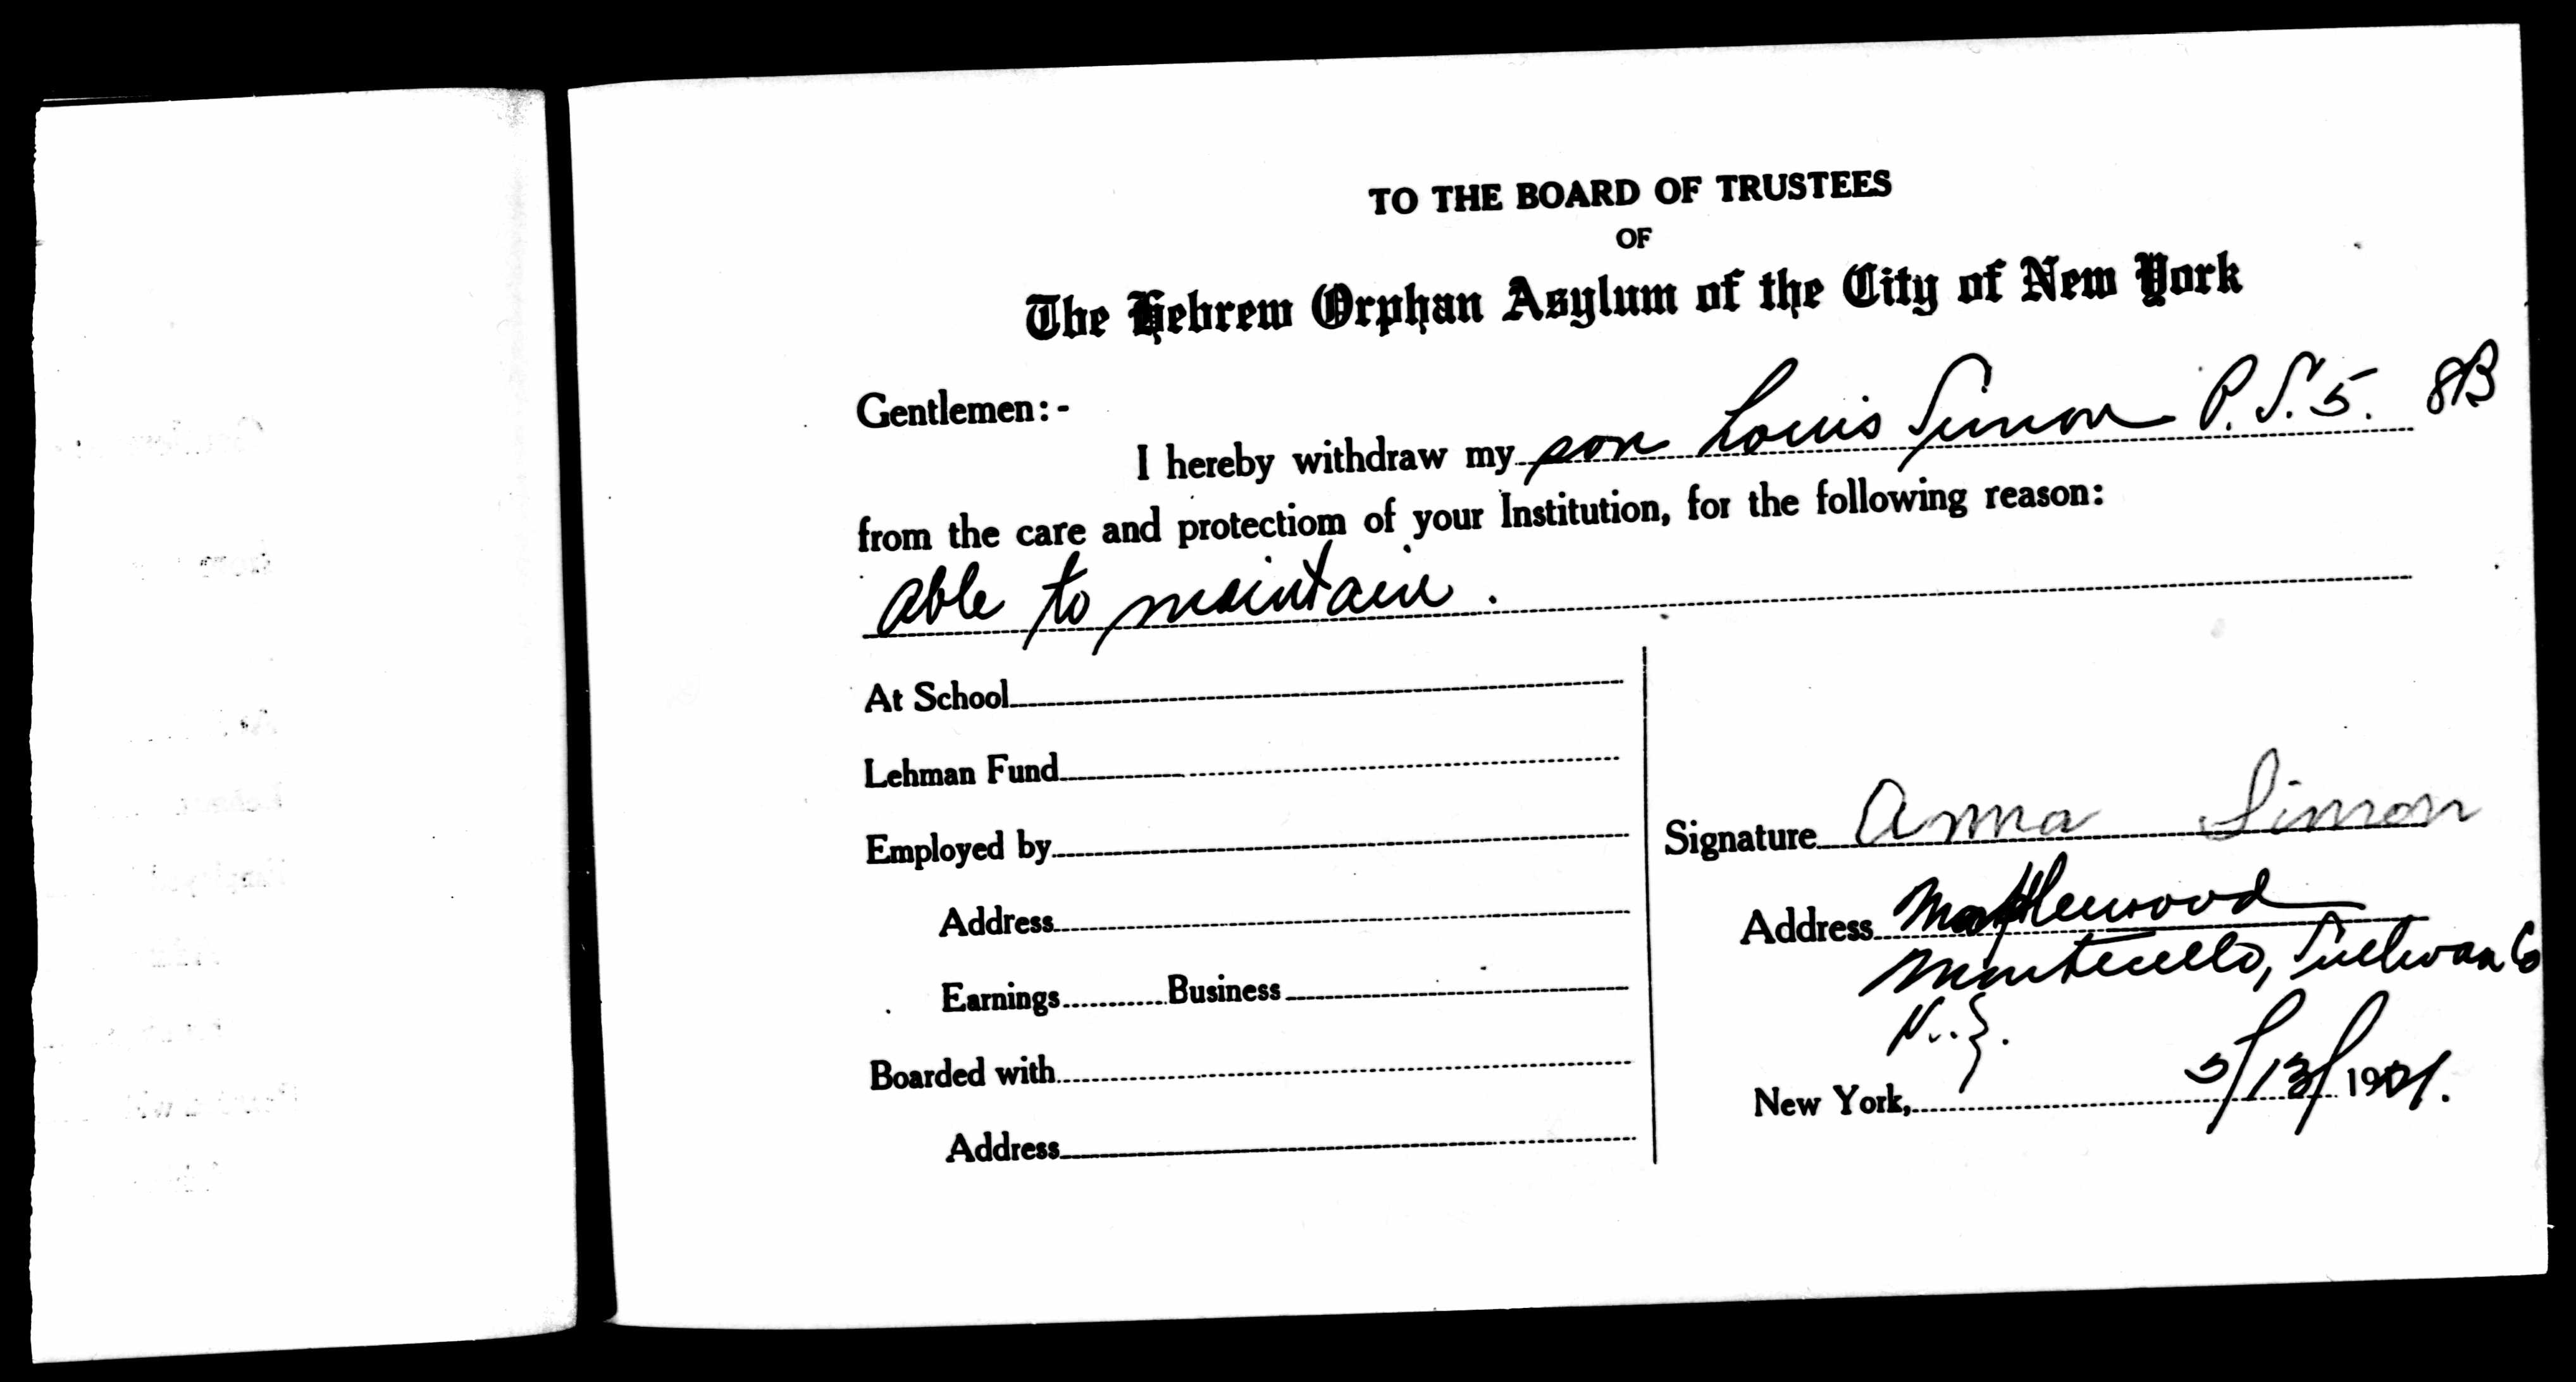 TO THE BOARD OF TRUSTEES
OF
The Hebrew Orphan Asylum of the City of New York
Gentlemen: -
I hereby withdraw my son Louis Simon P.S. 5. 8B
from the care and protectiom of your Institution, for the following reason:
able to maintain.
At School
Lehman Fund
Employed by
Address
Earnings Business
Boarded with
Address
Signature Anna Simon
Address Maplewood
Monticello, Sullivan Co
N.Y.
New York, 5/13/1921.